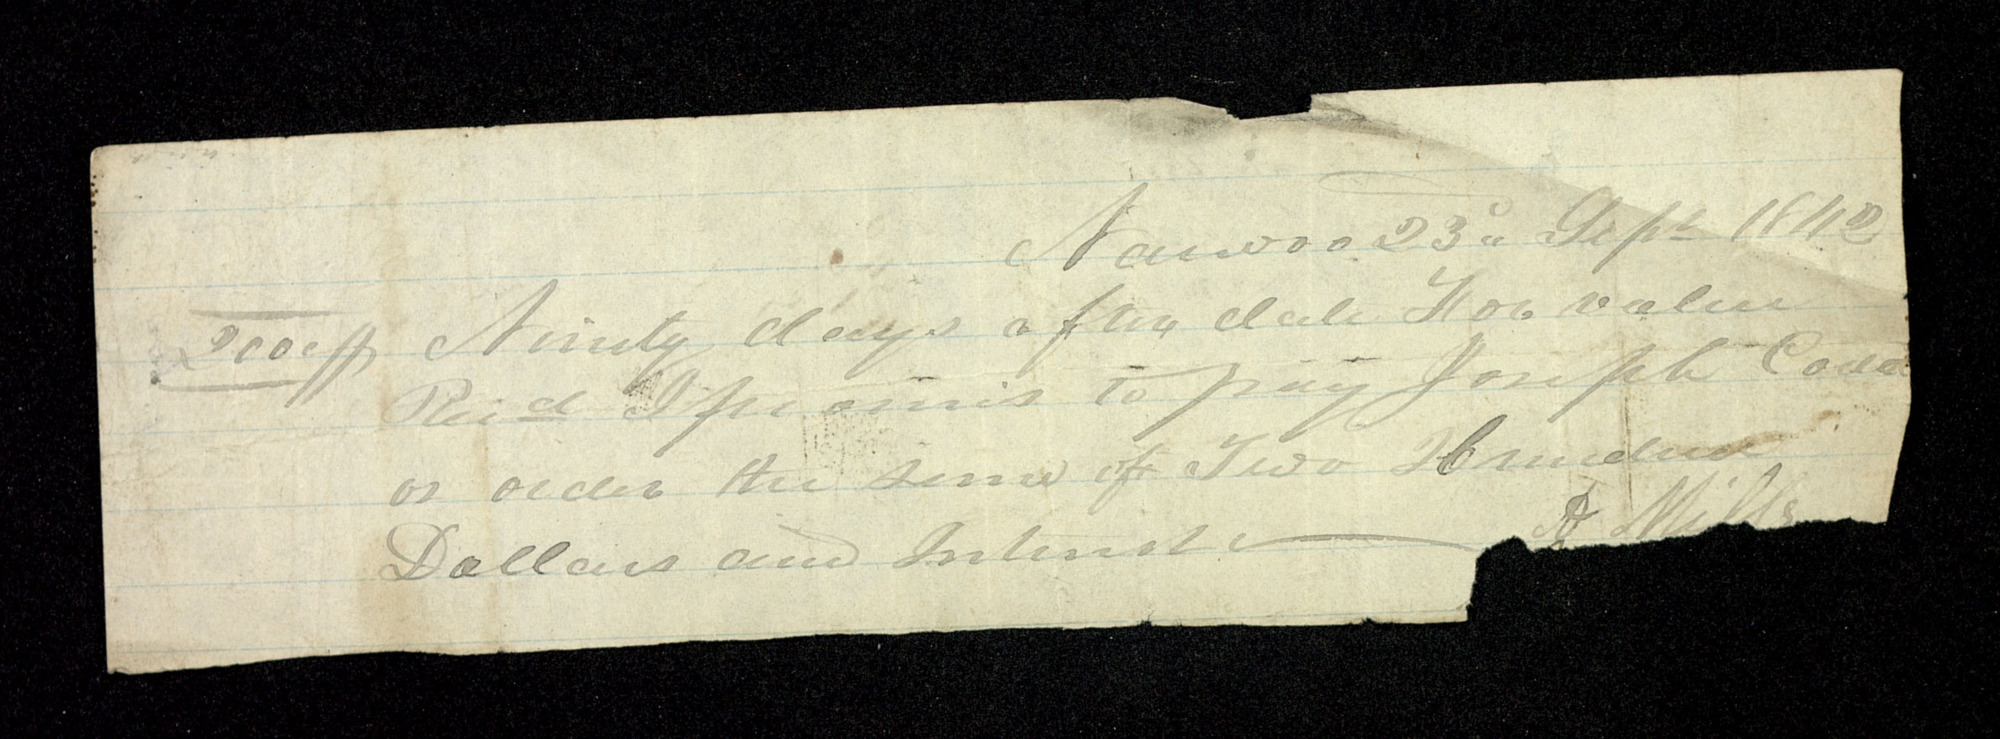 Nauvoo 23d Sept 1842
200 Ninety days after date For value
Recd I promis to pay Joseph
or order the sum of Two Hundred
Dollars and Interest
A Mills